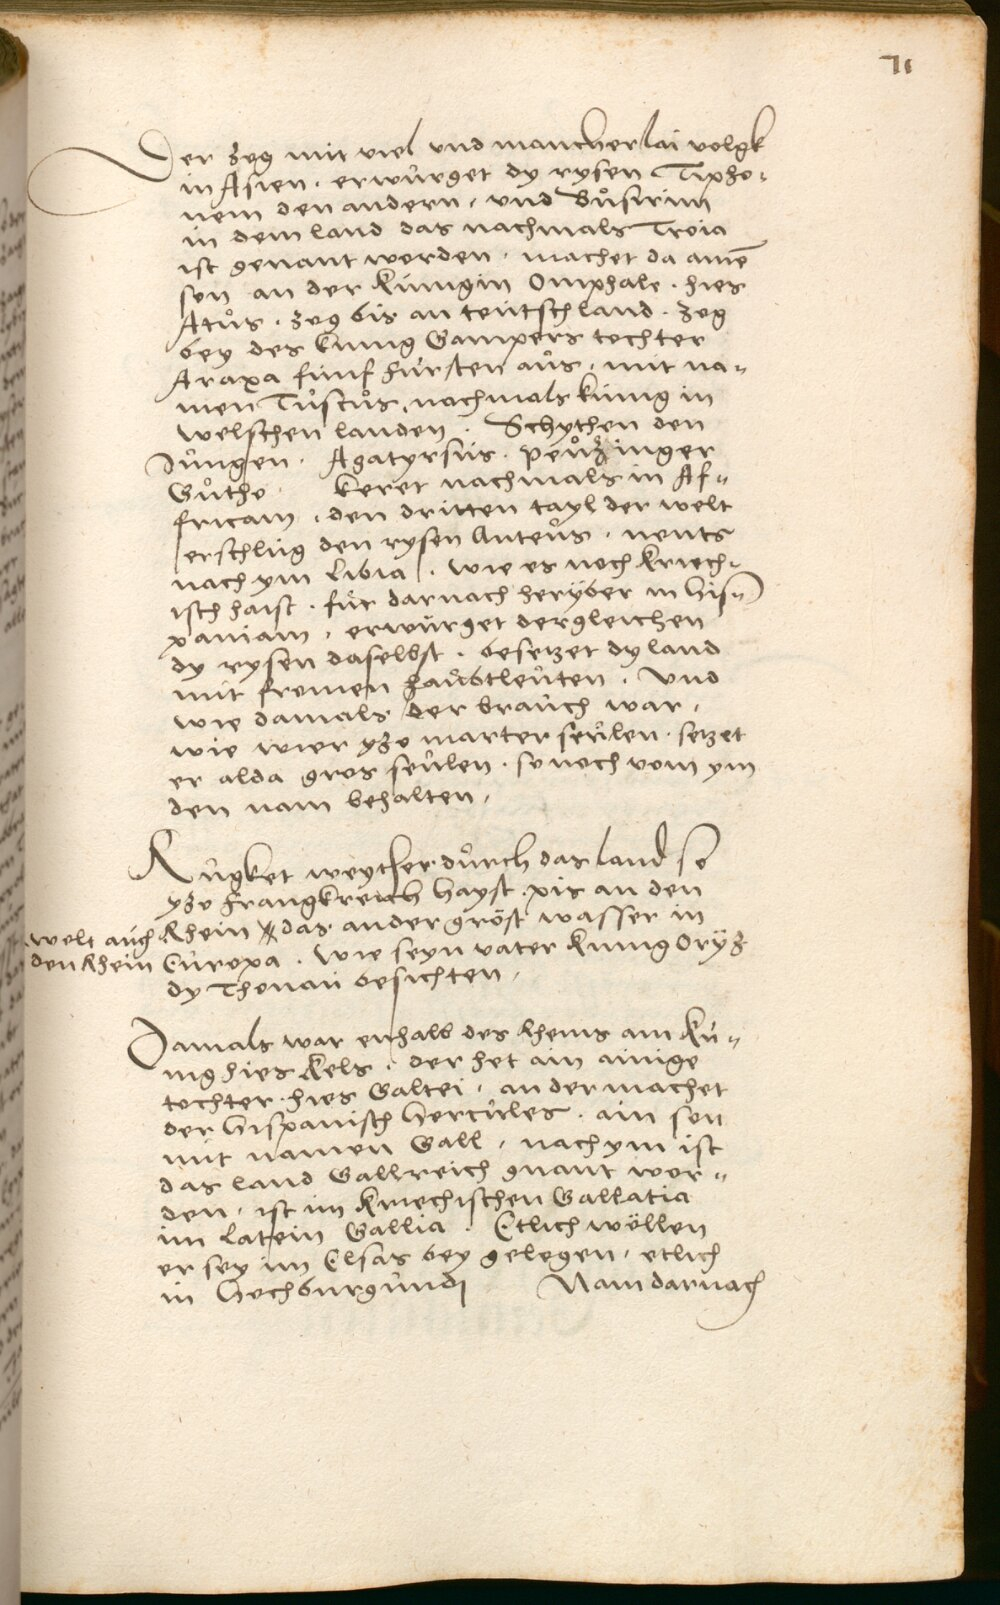 71
Der zog mit viel und mancherlai volgk
in Asien · erwürget dy rysen Tipho-
nem den andern, und Bůsirim
in dem land das nachmals Troia
ist genant worden · machet da ainē
son an der Künigin Omphale · hies
Atůs · zog bis an teütschland · zog
bey des kunig Gampers tochter
Araxa fünf Fürsten aůs, mit na-
men Tůscůs, nachmals künig in
welschen landen · Schythen den
Jůngen · Agatyrsus · peůzinger
Gůtho · Keret nachmals in Af-
fricam, den dritten tayl der welt
erschlůg den rysen Anteůs · nents
nach ym Libia · wie es noch kriech-
isch haist · für darnach herÿber in His-
paniam, erwürget dergleichen
dy rysen daselbst · besetzet dy land
mit fromen haůbtleůten · Und
wie damals der braůch war,
wie wier yzo marter seůlen · setzet
er alda gros seůlen · so noch vom ym
den nam behalten,
Růgket weyther důrch das land so
yzo Frangkreich hayst · pis an den
Rhein das ander gröst wasser in
wolt aůch
den Rhein
Europa · wie seyn vater kunig Orÿz
dy Thonaů besichten,
Damals war enhalb des Rheins am Kü-
nig hies Kels · der het ain ainige
tochter · hies Galtei · an der machet
der Hispanisch Hercůles · ain son
mit namen Gall, nach ym ist
das land Gallreich gnant wor-
den, ist im kriechischen Gallatia
im Latein Gallia · Etlich wöllen
er sey im Elsas bey gelegen, etlich
in Hochburgůndj Nam darnach